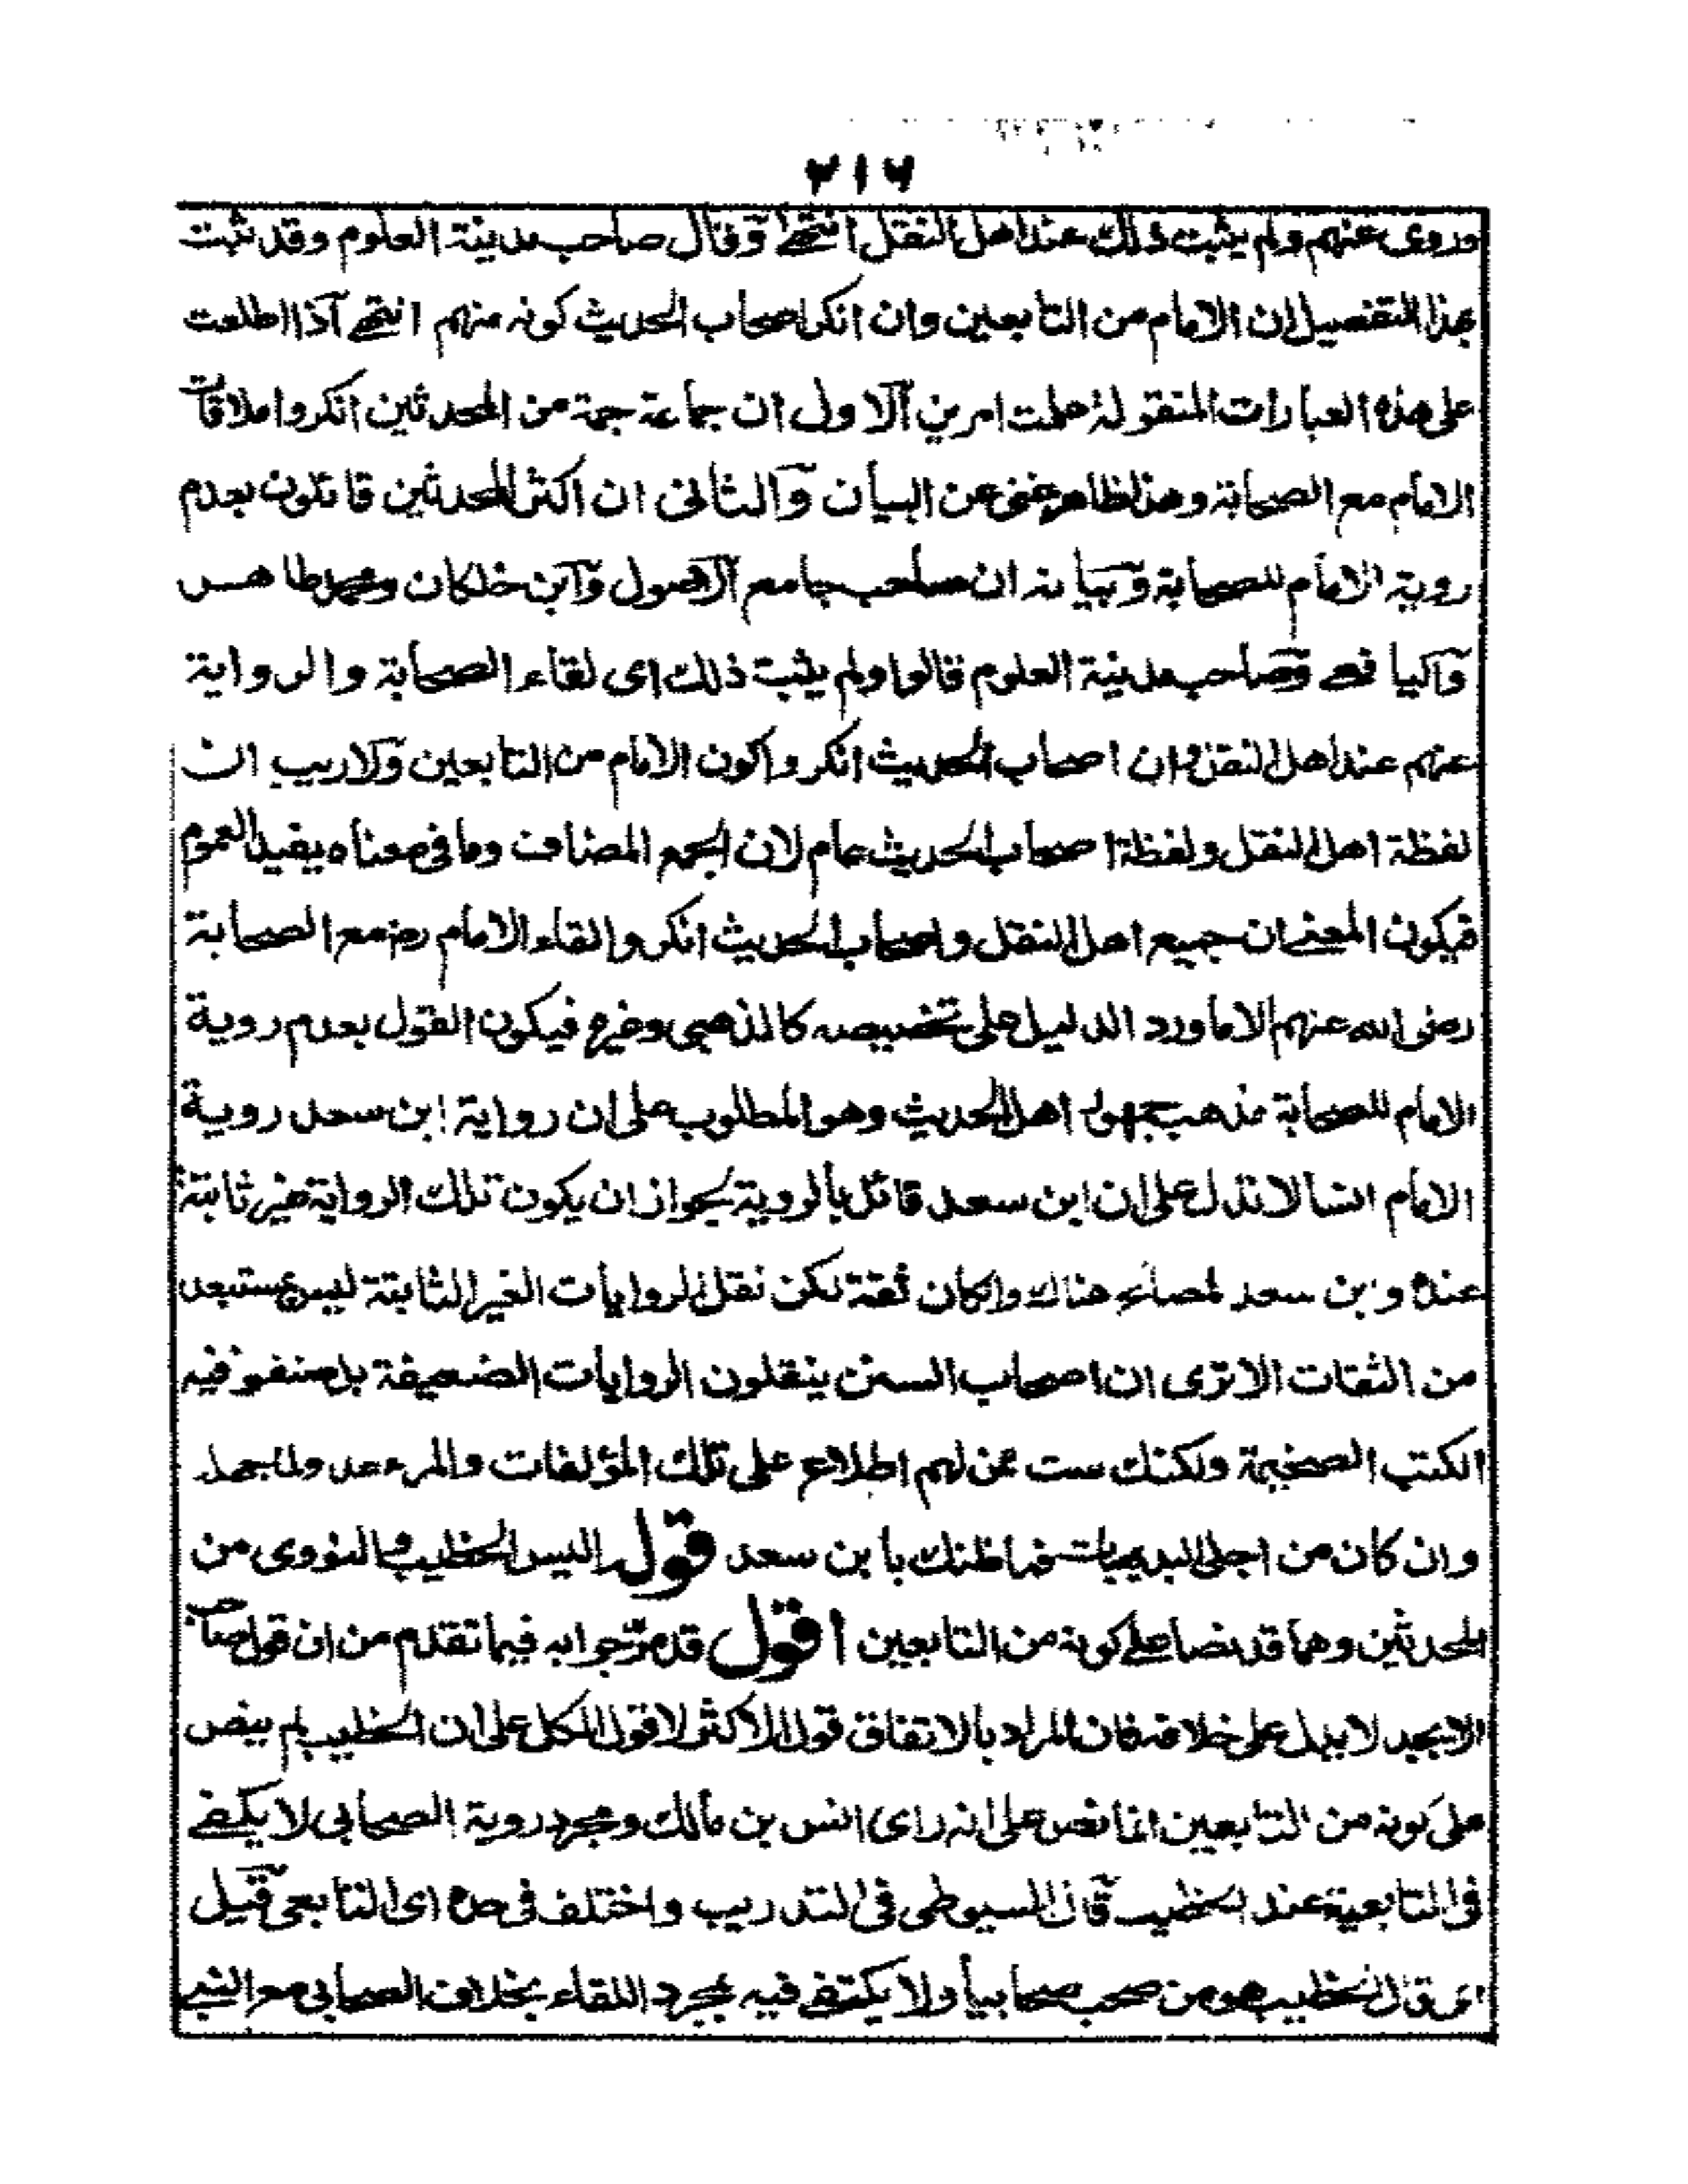 ٢١٦
وروى عنهم ولم يثبت ذلك عند اهل النقل انتهى وقال صاحب مدينة العلوم وقد ثبت
بهذا التفصيل ان الامام من التابعين وان انكر اصحاب الحديث كونه منهم انتهى آذا اطلعت
على هذه العبارات المنقولة علمت امرين آلاول ان جماعة جمة من المحدثين انكروا ملاقات
الامام مع الصحابة وهذا ظاهر غنى عن البيان وآلثانى ان اكثر المحدثين قائلون بعدم
روية الامام للصحابة وبيانه ان صاحب جامع آلاصول وآبن خلكان ومحمد طاهر
وآكيافعى وصاحب مدينة العلوم قالوا ولم يثبت ذلك اى لقاء الصحابة والرواية
عنهم عند اهل النقل وان اصحاب الحديث انكروا كون الامام من التابعين ولاريب ان
لفظة اهل النقل ولفظة اصحاب الحديث عام لان الجمع المضاف وما فى معناه يفيد العموم
فيكون المعنى ان جميع اهل النقل واصحاب الحديث انكروا لقاء الامام رض مع الصحابة
رضى الله عنهم الا ما ورد الدليل على تخصيصه كالذهبى وغيره فيكون القول بعدم روية
الامام للصحابة مذهب جمهور اهل الحديث وهو المطلوب على ان رواية ابن سعد روية
الامام انسا لا تدل على ان ابن سعد قائل بالروية لجواز ان يكون تلك الرواية غير ثابتة
عنده وابن سعد هناك وانكان ثقة لكن نقل الروايات الغير الثابتة ليس بمستبعد
من الثقات الا ترى ان اصحاب السنن ينقلون الروايات الضعيفة بل صنفوا فيه
الكتب الضخيمة ولكنك لست ممن لهم اطلاع على تلك المؤلفات
وان كان من اجلى البديهيات فما ظنك بابن سعد قوله اليس الخطيب والنووى من
المحدثين وهما قد نصا على كونه من التابعين اقول قد مر جوابه فيما تقدم من ان قول صاحب
الابجد لا يدل على خلافه فان المراد بالاتفاق قول الاكثر لا قول الكل على ان الخطيب لم ينص
على كونه من التابعين انما نص على انه راى انس بن مالك ومجرد روية الصحابى لا يكفى
فى التابعية عند الخطيب قال السيوطى فى التدريب واختلف فى حده اى التابعى قيل
اى قال الخطيب هو من صحب صحابيا ولا يكتفى فيه بمجرد اللقاء بخلاف الصحابى مع النبى